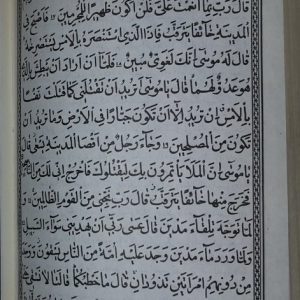 قَالَ رَبِّ بِمَا أَنْعَمْتَ عَلَيَّ فَلَنْ أَكُونَ ظَهِيرًا لِلْمُجْرِمِينَ ۝ فَأَصْبَحَ فِي
الْمَدِينَةِ خَائِفًا يَتَرَقَّبُ فَإِذَا الَّذِي اسْتَنْصَرَهُ بِالْأَمْسِ يَسْتَصْرِخُهُ
قَالَ لَهُ مُوسَى إِنَّكَ لَغَوِيٌّ مُبِينٌ ۝ فَلَمَّا أَنْ أَرَادَ أَنْ يَبْطِشَ بِالَّذِي
هُوَ عَدُوٌّ لَهُمَا قَالَ يَا مُوسَى أَتُرِيدُ أَنْ تَقْتُلَنِي كَمَا قَتَلْتَ نَفْسًا
بِالْأَمْسِ إِنْ تُرِيدُ إِلَّا أَنْ تَكُونَ جَبَّارًا فِي الْأَرْضِ وَمَا تُرِيدُ أَنْ
تَكُونَ مِنَ الْمُصْلِحِينَ ۝ وَجَاءَ رَجُلٌ مِنْ أَقْصَا الْمَدِينَةِ يَسْعَى قَالَ
يَا مُوسَى إِنَّ الْمَلَأَ يَأْتَمِرُونَ بِكَ لِيَقْتُلُوكَ فَاخْرُجْ إِنِّي لَكَ مِنَ النَّاصِحِينَ ۝
فَخَرَجَ مِنْهَا خَائِفًا يَتَرَقَّبُ قَالَ رَبِّ نَجِّنِي مِنَ الْقَوْمِ الظَّالِمِينَ ۝
وَلَمَّا تَوَجَّهَ تِلْقَاءَ مَدْيَنَ قَالَ عَسَى رَبِّي أَنْ يَهْدِيَنِي سَوَاءَ السَّبِيلِ ۝
وَلَمَّا وَرَدَ مَاءَ مَدْيَنَ وَجَدَ عَلَيْهِ أُمَّةً مِنَ النَّاسِ يَسْقُونَ وَوَجَدَ
مِنْ دُونِهِمُ امْرَأَتَيْنِ تَذُودَانِ قَالَ مَا خَطْبُكُمَا قَالَتَا لَا نَسْقِي